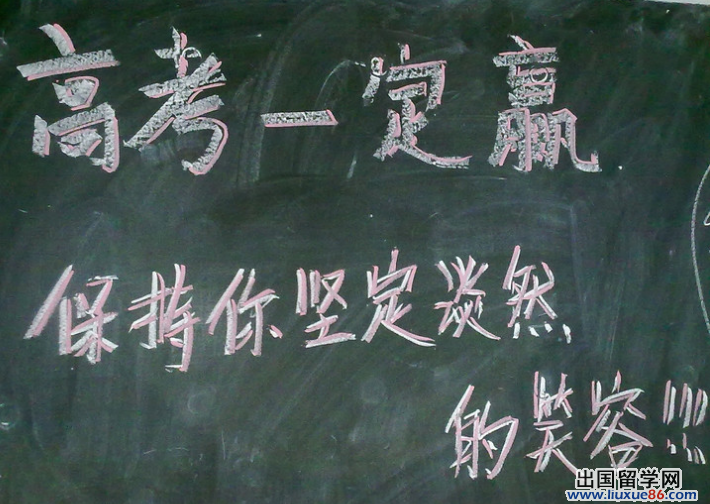 高考一定赢
保持你坚定淡然
的笑容!!!
出国留学网
www.liuxue86.com